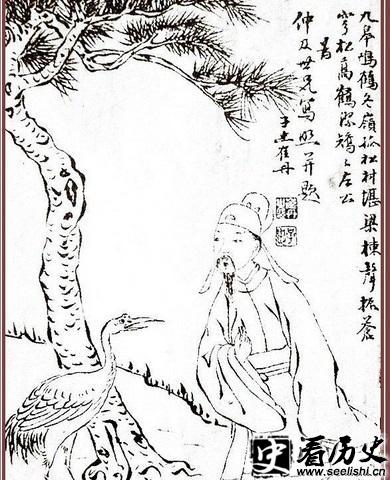 九皋鳴鶴冬嶺孤松材堪梁棟聲振蒼
穹松高鶴潔矯々左公
仲及世兄寫照并題
子忠崔丹
史看历史
www.seelishi.cn